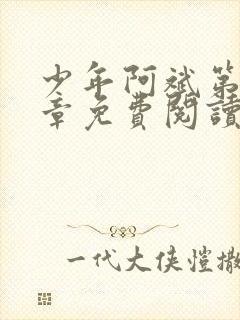 少年阿斌第
章免費閱讀
一代大俠愷撒